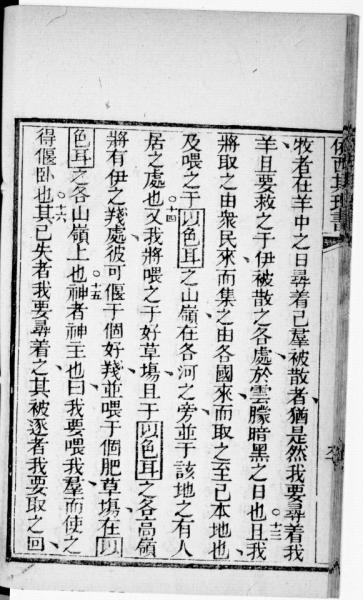 牧者在羊中之日尋着己羣被散者猶是然我要尋着我
羊且要救之于伊被散之各處於雲朦暗黑之日也且我
將取之由衆民來而集之由各國來而取之至己本地也
及喂之于以色耳之山嶺在各河之旁並于該地之有人
居之處也又我將喂之于好草塲且于以色耳之各高嶺
將有伊之羢處彼可偃于個好羢並喂于個肥草塲在以
色耳之各山嶺上也神者神主也曰我要喂我羣而使之
得偃卧也其己失者我要尋着之其被逐者我要取之回
十三
十四
十五
十六